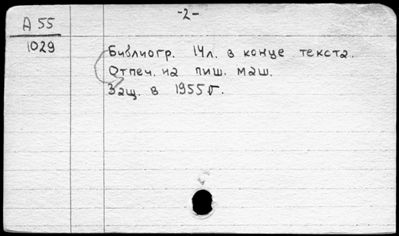 -2-
А 55
1029
Библиогр. 14л. в конце текста.
Отпеч. на пиш. маш.
Защ. в 1955г.